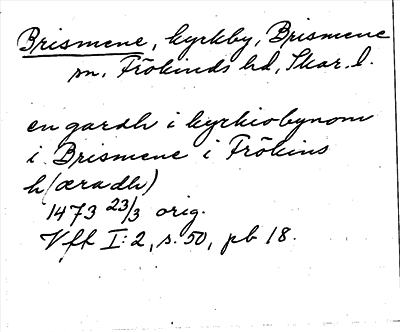 Brismene, kyrkby, Brismene
sn, Frökinds hd, Skar. l.
en gardh i kyrkiobynom
i Brismene i Frökins
h(æradh)
1473 23/3 orig.
Vfh I:2, s. 50, pb 18.